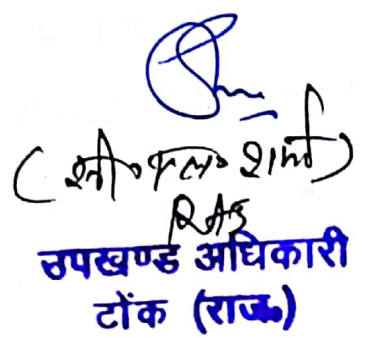 शर्मा)
RAS
उपखण्ड अधिकारी
टोंक (राज०)